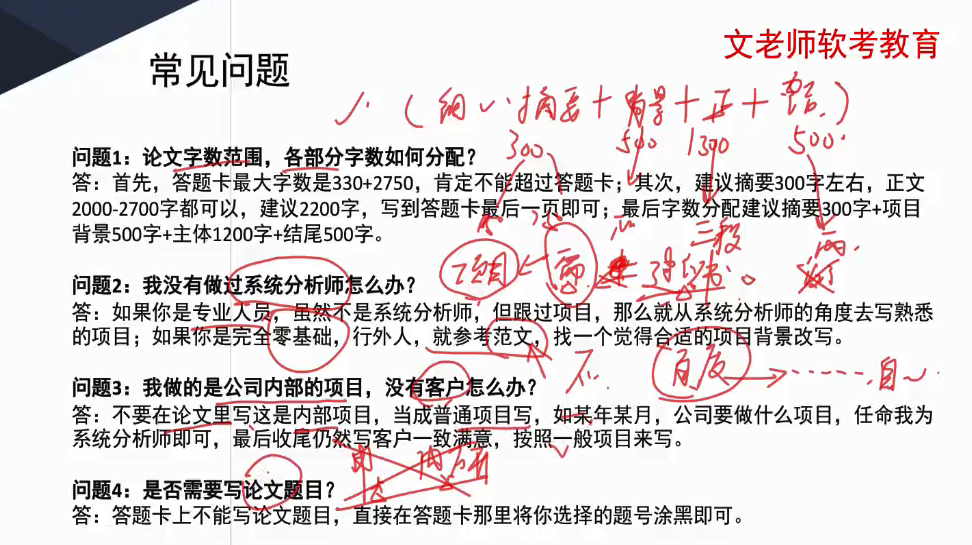 文老师软考教育
常见问题
(细 摘要+背景+正+结)
300 500 1300 500
问题1：论文字数范围，各部分字数如何分配？
答：首先，答题卡最大字数是330+2750，肯定不能超过答题卡；其次，建议摘要300字左右，正文
2000-2700字都可以，建议2200字，写到答题卡最后一页即可；最后字数分配建议摘要300字+项目
背景500字+主体1200字+结尾500字。
三段
问题2：我没有做过系统分析师怎么办？
答：如果你是专业人员，虽然不是系统分析师，但跟过项目，那么就从系统分析师的角度去写熟悉
的项目；如果你是完全零基础，行外人，就参考范文，找一个觉得合适的项目背景改写。
问题3：我做的是公司内部的项目，没有客户怎么办？
答：不要在论文里写这是内部项目，当成普通项目写，如某年某月，公司要做什么项目，任命我为
系统分析师即可，最后收尾仍然写客户一致满意，按照一般项目来写。
问题4：是否需要写论文题目？
答：答题卡上不能写论文题目，直接在答题卡那里将你选择的题号涂黑即可。